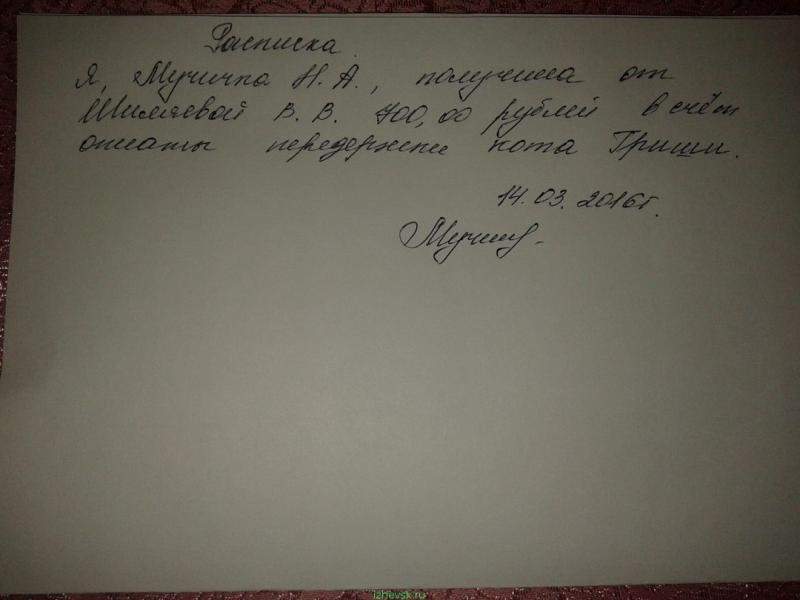 Расписка.
Я, Мучкина Н. А., получила от
Шиляевой В. В. 700,00 рублей в счёт
оплаты передержки кота Гриши.
14.03.2016г.
izhevsk.ru